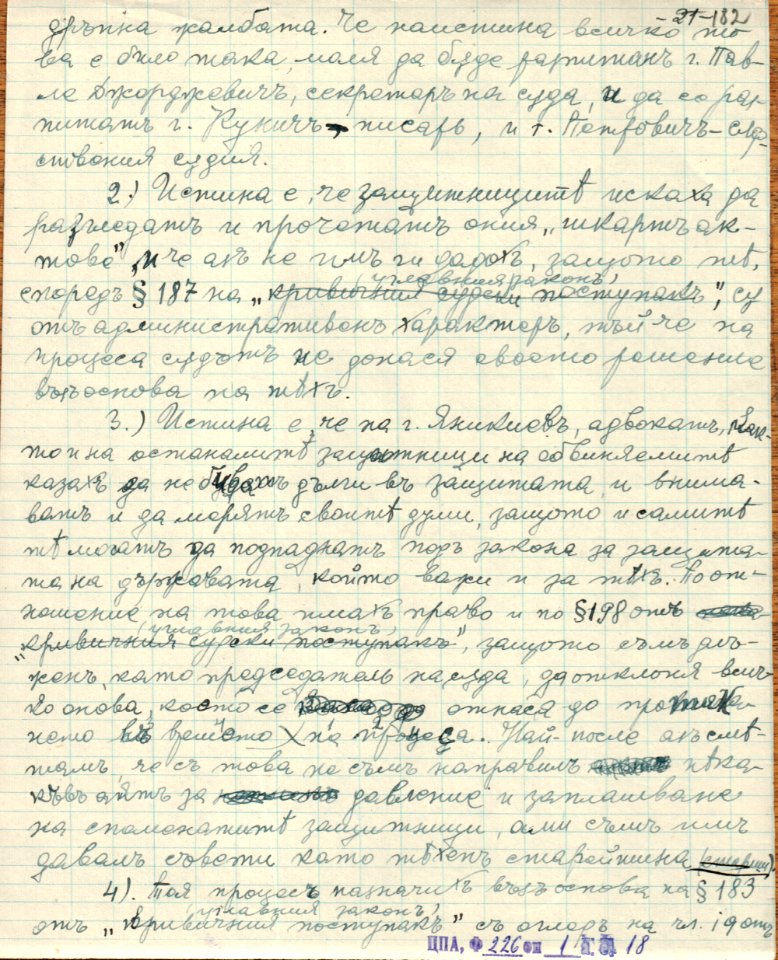 21-182
дръпна жалбата. Че наистина всичко то-
ва е било така, моля да бѫде разпитанъ г. Пав-
ле Джорджевичъ, секретарь на сѫда, и да се раз-
питатъ г. Куничъ, писарь, и г. Петровичъ – след-
ствения сѫдия.
2.) Истина е, че защитницитѣ искаха да
разгледатъ и прочетатъ ония „шкартъ ак-
тове", и че азъ не имъ ги дадохъ, защото тѣ,
(углавния законъ)
споредъ § 187 на „кривичния сѫдски поступакъ", сѫ
отъ административенъ характеръ, тъй че на
процеса сѫдътъ не донася своето решение
възъ основа на тѣхъ.
3.) Истина е, че на г. Яникиевъ, адвокатъ, как-
то и на останалитѣ защитници на обвиняемитѣ
казахъ да не бѫдатъ дълги въ защитата и внима-
ватъ и да мѣрятъ своитѣ думи, защото и самитѣ
тѣ могатъ да подпаднатъ подъ закона за защита-
та на държавата, който важи и за тѣхъ. По от-
ношение на това имахъ право и по § 198 отъ
(углавния законъ)
„кривичния сѫдски поступакъ", защото съмъ длъ-
женъ, като председатель на сѫда, да отклоня всич-
ко онова, което се отнася до протака-
нето на процеса. Най-после азъ смѣ-
тамъ, че съ това не съмъ направилъ нѣка-
къвъ актъ за давление и заплашване
на споменатитѣ защитници, ами съмъ имъ
давалъ съвети като тѣхенъ старейшина
4). Тоя процесъ назначихъ възъ основа на § 183
(углавния законъ)
отъ „кривичния поступакъ" съ огледъ на чл. 19 отъ
ЦПА, Ф 226 оп 1 18